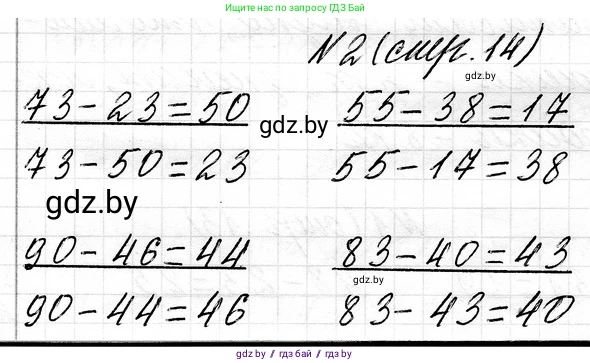 Ищите нас по запросу ГДЗ БАЙ
N2 (стр. 14)
gdz.by
73-23=50
55-38=17
gdz.by
73-50=23
55-17=38
gdz.by
90-46=44
83-40=43
gdz.by
90-44=46
83-43=40
gdz.by / гдз бай / gdz by